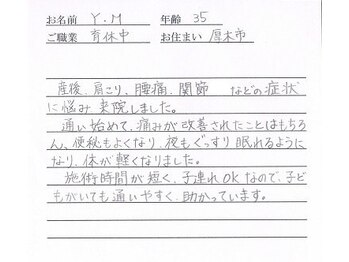 お名前 Y.M 年齢 35
ご職業 育休中 お住まい 厚木市
産後、肩こり、腰痛、関節 などの症状
に悩み来院しました。
通い始めて、痛みが改善されたことはもちろ
ん、便秘もよくなり、夜もぐっすり眠れるように
なり、体が軽くなりました。
施術時間が短く、子連れOKなので、子ど
もがいても通いやすく、助かっています。